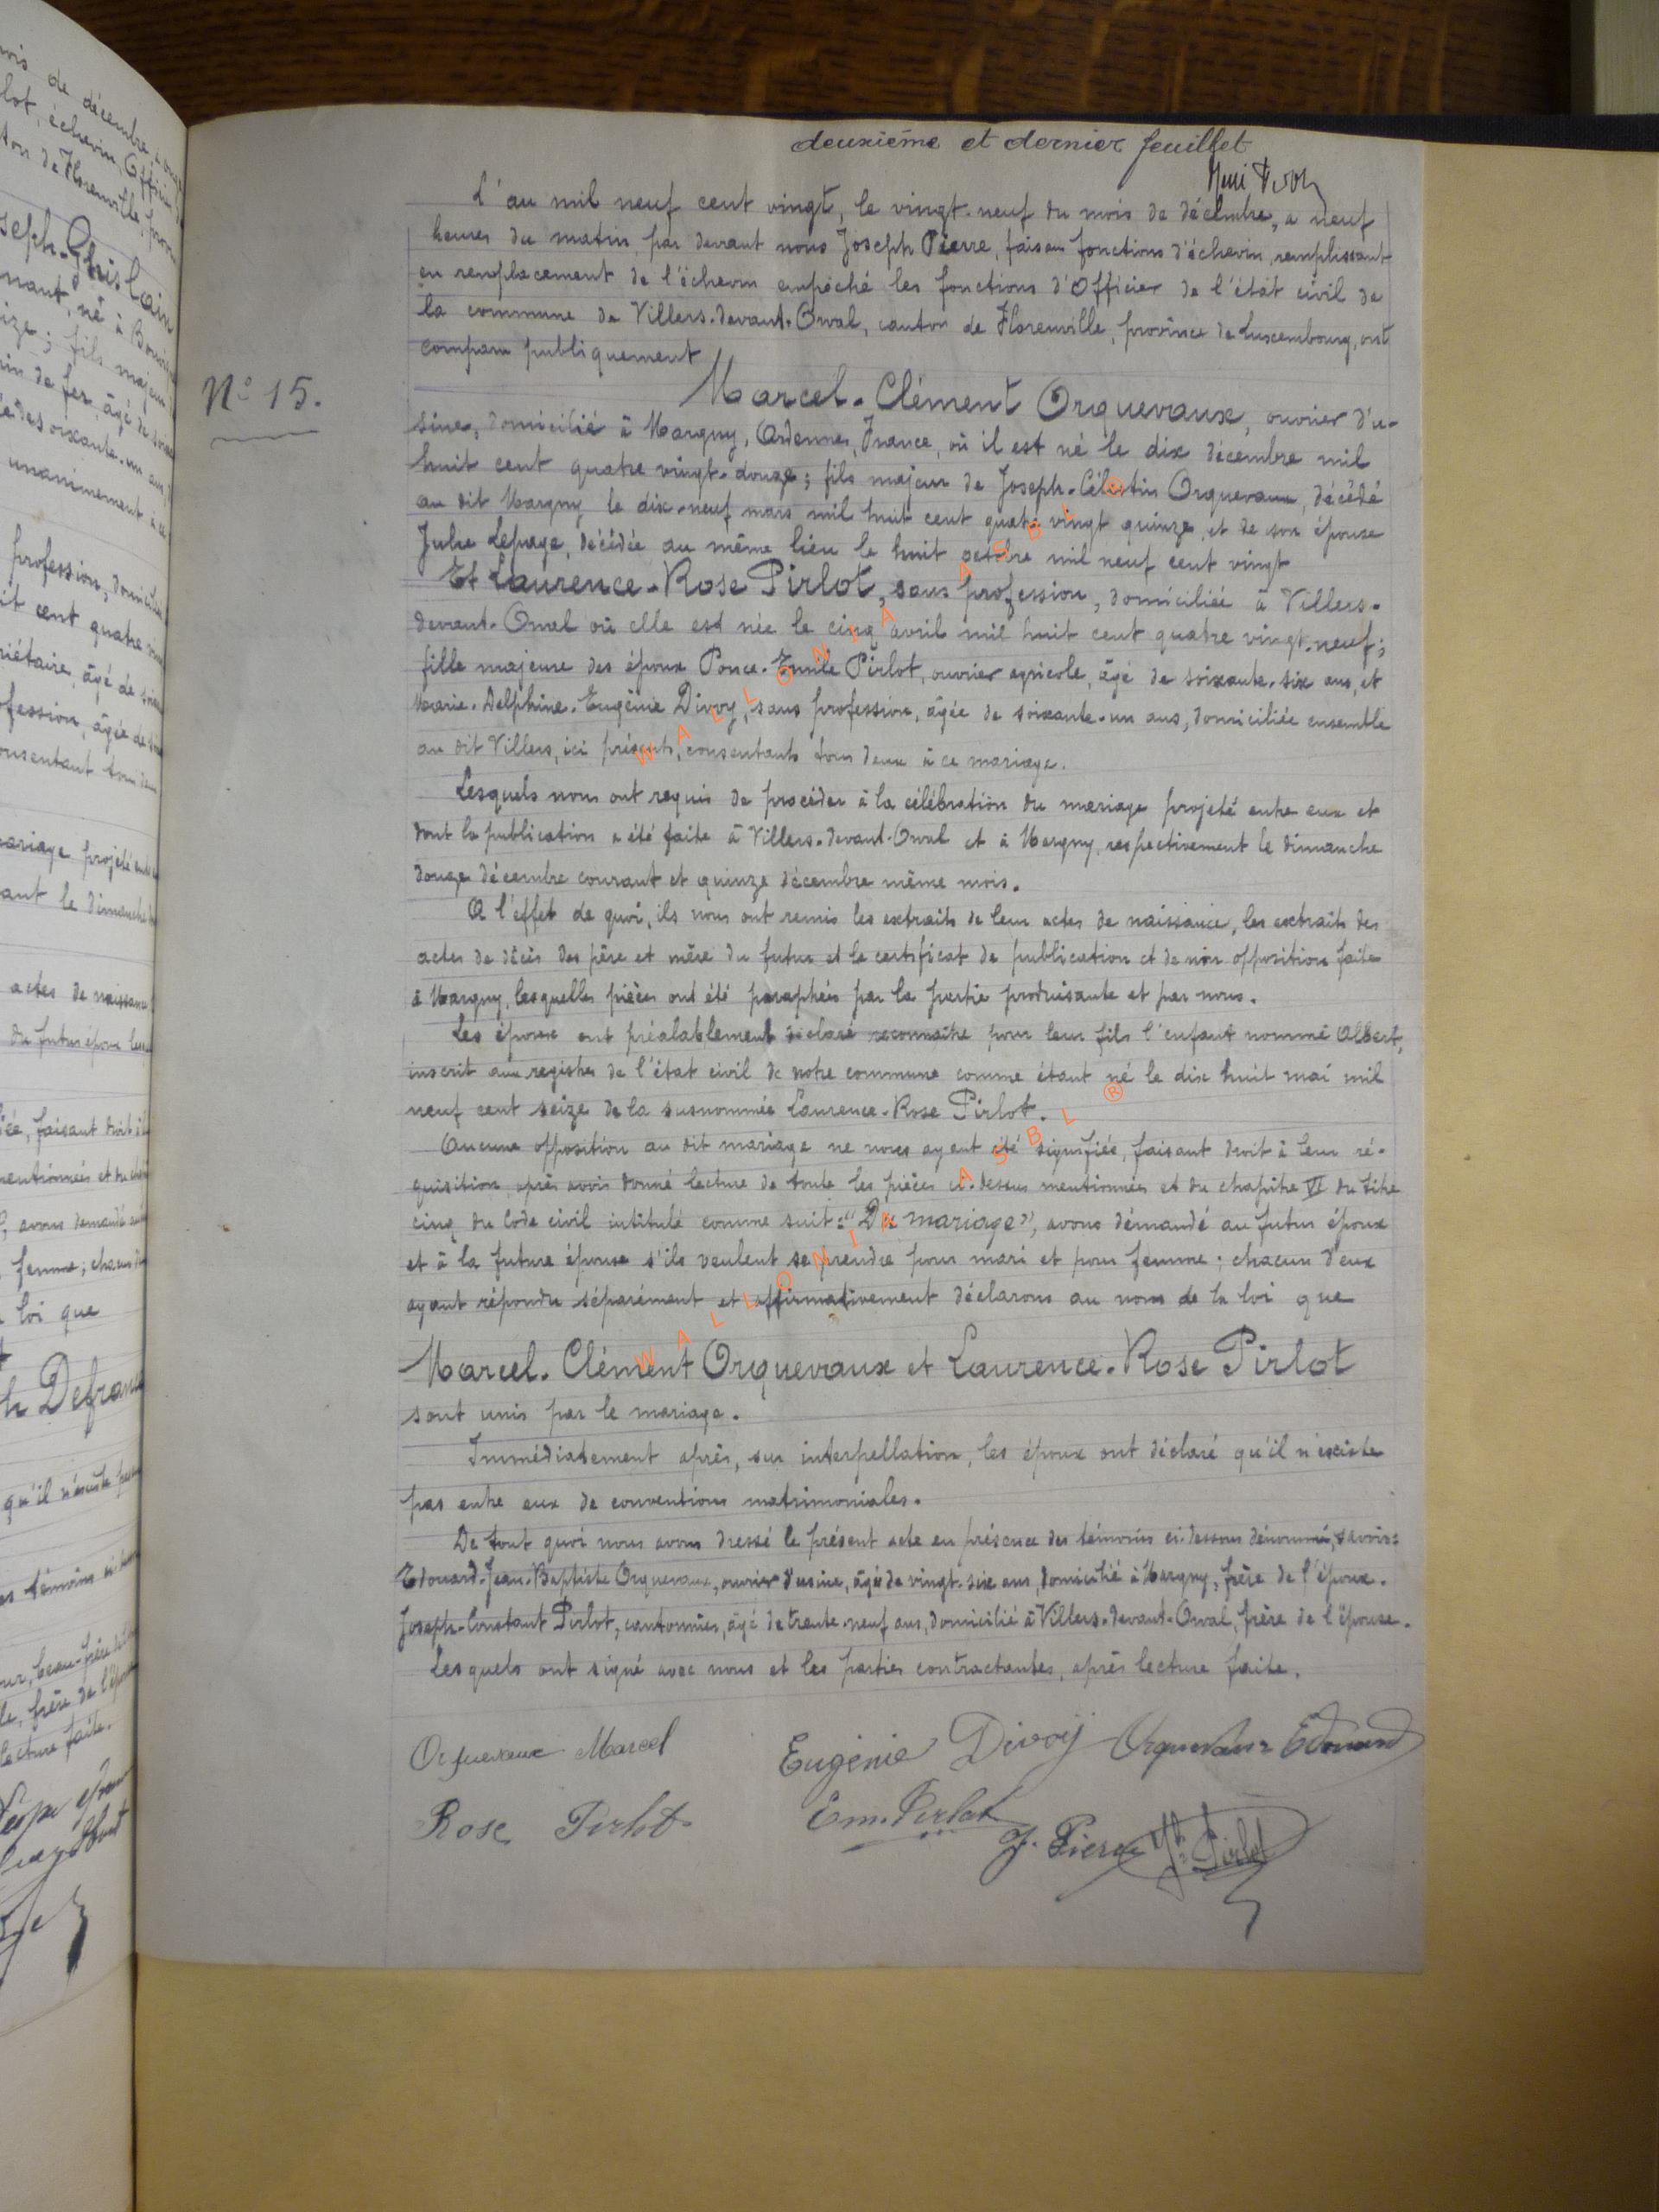 deuxième et dernier feuillet
L'an mil neuf cent vingt, le vingt-neuf du mois de décembre, a neuf
heures du matin, par devant nous Joseph Pierre, faisan fonctions d'échevin, remplissant
en remplacement de l'échevin empêché les fonctions d'Officier de l'état civil de
la commune de Villers-devant-Orval, canton de Florenville, province de Luxembourg, ont
comparu publiquement
N° 15.
Marcel-Clément Orquevaux, ouvrier d'u-
sine, domicilié à Margny, Ardennes, France, où il est né le dix décembre mil
huit cent quatre vingt-douze; fils majeur de Joseph-Célestin Orquevaux, décédé
au dit Margny le dix-neuf mars mil huit cent quatre vingt quinze, et de son épouse
Julie Lepage, décédée au même lieu le huit octobre mil neuf cent vingt
Et Laurence-Rose Pirlot, sans profession, domiciliée à Villers-
devant-Orval où elle est née le cinq avril mil huit cent quatre vingt-neuf;
fille majeure des époux Ponce-Emile Pirlot, ouvrier agricole, âgé de soixante-six ans, et
Marie-Delphine-Eugénie Divoy, sans profession, âgée de soixante-un ans, domiciliée ensemble
au dit Villers, ici présents, consentants tous deux à ce mariage.
Lesquels nous ont requis de procéder à la célébration du mariage projeté entre eux et
dont la publication a été faite à Villers-devant-Orval et à Margny, respectivement le dimanche
douze décembre courant et quinze décembre même mois.
A l'effet de quoi, ils nous ont remis les extraits de leur actes de naissance, les extraits des
actes de décès des père et mère du futur et le certificat de publication et de non opposition faite
à Margny, lesquelles pièces ont été paraphées par la partie produisante et par nous.
Les époux ont préalablement déclaré reconnaître pour leur fils l'enfant nommé Albert,
inscrit aux registres de l'état civil de notre commune comme étant né le dix huit mai mil
neuf cent seize de la susnommée Laurence-Rose Pirlot.
Aucune opposition au dit mariage ne nous ayant été signifiée, faisant droit à leur ré-
quisition, après avoir donné lecture de toute les pièces ci-dessus mentionnées et du chapitre VI du titre
cinq du Code civil intitulé comme suit: "Du mariage", avons démandé au futur époux
et à la future épouse s'ils veulent se prendre pour mari et pour femme; chacun d'eux
ayant répondu séparément et affirmativement déclarons au nom de la loi que
Marcel-Clément Orquevaux et Laurence-Rose Pirlot
sont unis par le mariage.
Immédiatement après, sur interpellation, les époux ont déclaré qu'il n'existe
pas entre eux de conventions matrimoniales.
De tout quoi nous avons dressé le présent acte en présence des témoins ci-dessous dénommés, savoir:
Edouard-Jean-Baptiste Orquevaux, ouvrier d'usine, âgé de vingt-six ans, domicilié à Margny, frère de l'époux.
Joseph-Constant Pirlot, cantonnier, âgé de trente-neuf ans, domicilié à Villers-devant-Orval, frère de l'épouse.
Lesquels ont signé avec nous et les parties contractantes, après lecture faite.
Orquevaux Marcel
Eugénie Divoij
Orquevaux Edouard
Rose Pirlot
Em. Pirlot
J. Pierre
Pirlot
WALLONIA ASBL ®
WALLONIA ASBL ®